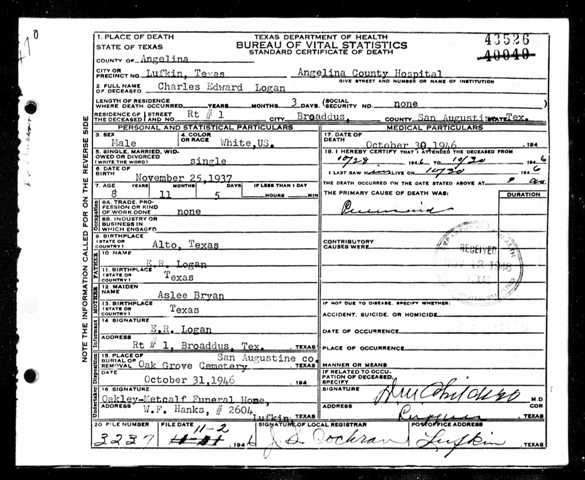 1. PLACE OF DEATH
STATE OF TEXAS
TEXAS DEPARTMENT OF HEALTH
BUREAU OF VITAL STATISTICS
STANDARD CERTIFICATE OF DEATH
43526
40040
COUNTY OF Angelina
CITY OR PRECINCT NO. Lufkin, Texas Angelina County Hospital
GIVE STREET AND NUMBER OR NAME OF INSTITUTION
2. FULL NAME OF DECEASED Charles Edward Logan
LENGTH OF RESIDENCE WHERE DEATH OCCURRED YEARS MONTHS 3 DAYS SOCIAL SECURITY NO. none
RESIDENCE OF THE DECEASED STREET AND NO. Rt # 1 CITY Broaddus, COUNTY San Augustine STATE Tex.
PERSONAL AND STATISTICAL PARTICULARS
3. SEX Male
4. COLOR OR RACE White,US.
5. SINGLE, MARRIED, WIDOWED OR DIVORCED (WRITE THE WORD) single
6. DATE OF BIRTH November 25,1937
7. AGE YEARS MONTHS DAYS IF LESS THAN 1 DAY
8 11 5 HOURS MIN
8A. TRADE, PROFESSION OR KIND OF WORK DONE none
8B. INDUSTRY OR BUSINESS IN WHICH ENGAGED
9. BIRTHPLACE (STATE OR COUNTRY) Alto, Texas
10 NAME E.R. Logan
11. BIRTHPLACE (STATE OR COUNTRY) Texas
12. MAIDEN NAME Aslee Bryan
13. BIRTHPLACE (STATE OR COUNTRY) Texas
14. SIGNATURE E.R. Logan
ADDRESS Rt # 1, Broaddus, Tex. TEXAS
15. PLACE OF BURIAL OR REMOVAL San Augustine co. Oak Grove Cemetery TEXAS
DATE October 31,1946 194
16. SIGNATURE Oakley-Metcalf Funeral Home,
ADDRESS W.F. Hanks, # 2604 Lufkin, TEXAS
MEDICAL PARTICULARS
17. DATE OF DEATH October 30,1946 194
18. I HEREBY CERTIFY THAT I ATTENDED THE DECEASED FROM
10/28 1946 TO 10/30 1946
I LAST SAW him ALIVE ON 10/30 1946
THE DEATH OCCURRED ON THE DATE STATED ABOVE AT
THE PRIMARY CAUSE OF DEATH WAS: DURATION
Pneumonia
CONTRIBUTORY CAUSES WERE:
RECEIVED
IF NOT DUE TO DISEASE, SPECIFY WHETHER:
ACCIDENT, SUICIDE, OR HOMICIDE
DATE OF OCCURRENCE
PLACE OF OCCURRENCE
MANNER OR MEANS
IF RELATED TO OCCUPATION OF DECEASED, SPECIFY
SIGNATURE M.D.
ADDRESS TEXAS
20 FILE NUMBER FILE DATE SIGNATURE OF LOCAL REGISTRAR POSTOFFICE ADDRESS
3237 11-2 1946 J. D. Cochran Lufkin TEXAS
NOTE THE INFORMATION CALLED FOR ON THE REVERSE SIDE
Occupation
FATHER
MOTHER
Informant
Undertaker Disposition